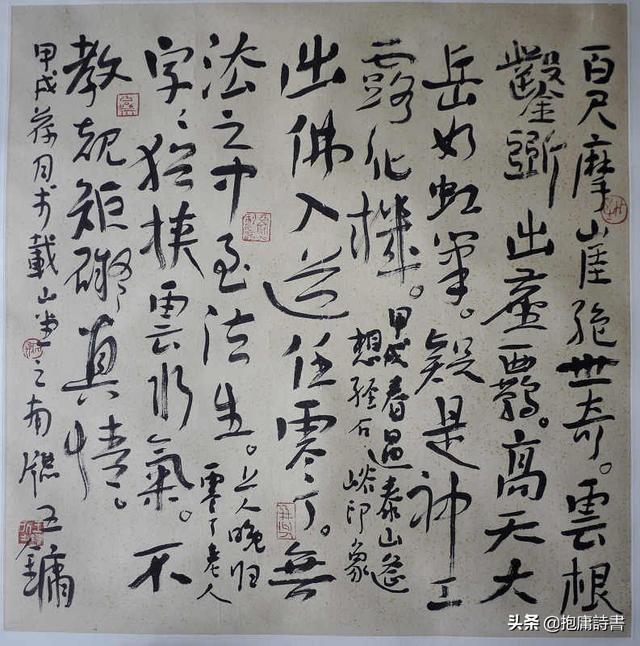 百尺摩崖絶世奇。雲根
鑿斵出塵羈。高天大
岳如虹筆。疑是神工
露化機。
甲戌春過泰山遙
想經石峪印象
出佛入道任零丁。無
法之中至法生。
上人晚归
零丁老人
字〻猶挾雲水氣。不
教規矩礙真情。
甲戌荷月于戴山堂之南牖
头条 @抱庸詩書